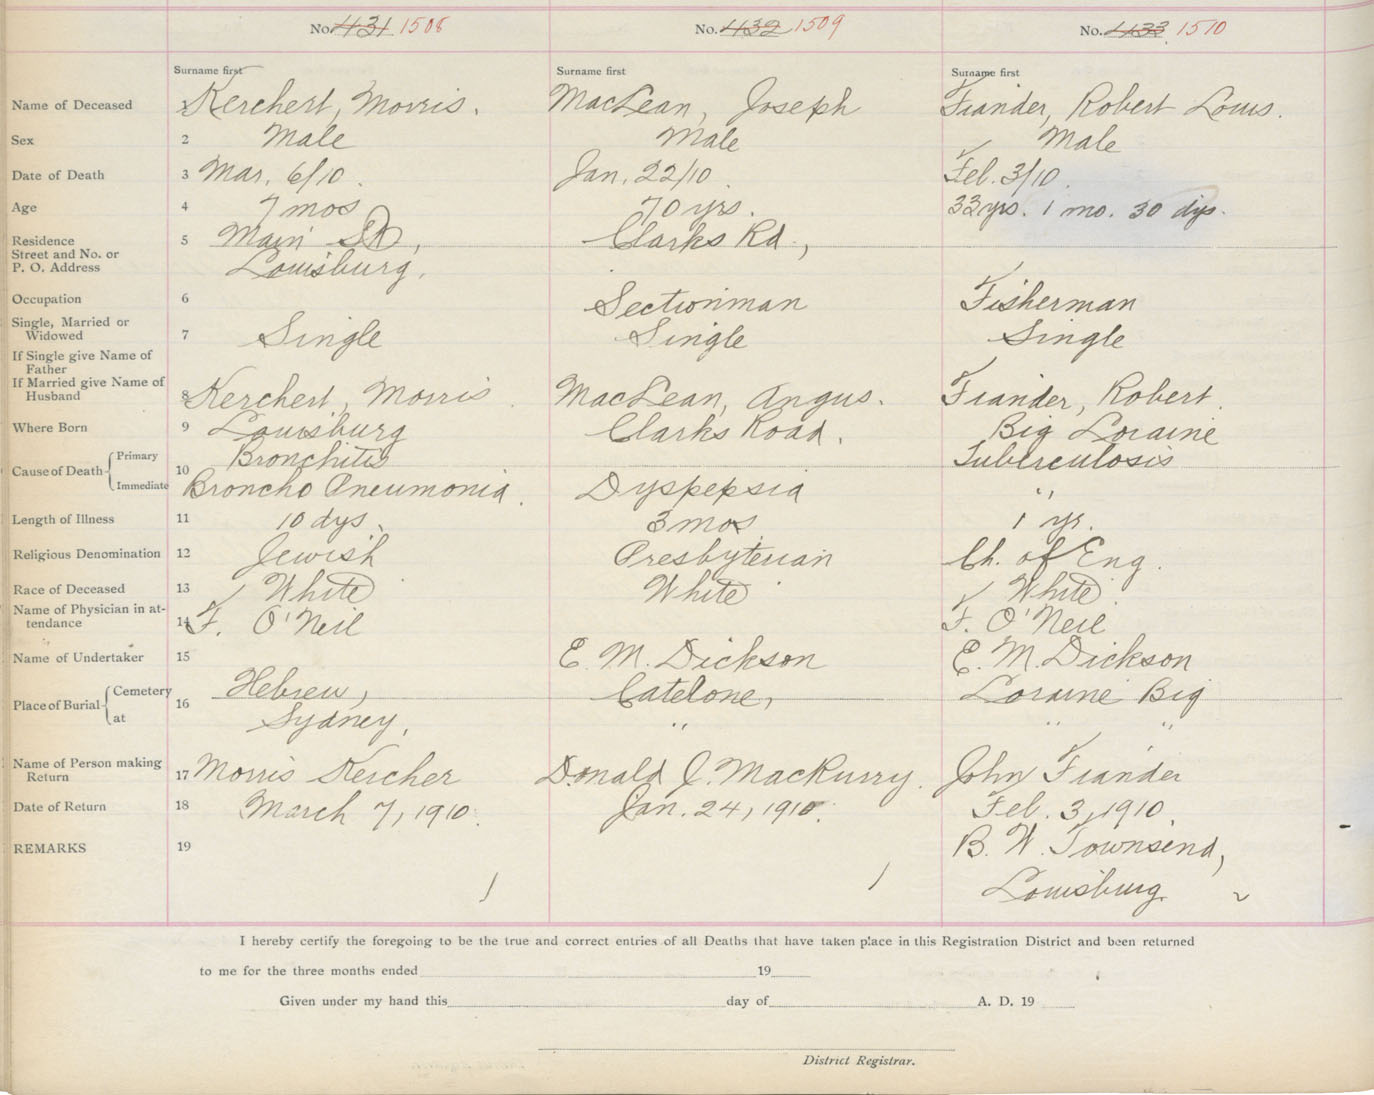 No. 431 1508 No. 432 1509 No. 433 1510
Surname first Surname first Surname first
Name of Deceased 1 Kerchert, Morris. MacLean, Joseph Fiander, Robert Louis.
Sex 2 Male Male Male
Date of Death 3 Mar. 6/10. Jan. 22/10. Feb. 3/10.
Age 4 7 mos 70 yrs. 33 yrs. 1 mo. 30 dys.
Residence 5 Main St, Clarks Rd.,
Street and No. or
P. O. Address Louisburg.
Occupation 6 Sectionman Fisherman
Single, Married or
Widowed 7 Single Single Single
If Single give Name of
Father
If Married give Name of
Husband 8 Kerchert, Morris. MacLean, Angus. Fiander, Robert.
Where Born 9 Louisburg Clarks Road. Big Loraine
Cause of Death Primary Bronchitis Tuberculosis
10
Immediate Broncho Pneumonia. Dyspepsia "
Length of Illness 11 10 dys. 3 mos 1 yr.
Religious Denomination 12 Jewish Presbyterian Ch. of Eng.
Race of Deceased 13 White White White
Name of Physician in at-
tendance 14 F. O'Neil F. O'Neil
Name of Undertaker 15 E. M. Dickson E. M. Dickson
Place of Burial Cemetery 16 Hebrew, Catelone, Loraine Big
at Sydney, " " "
Name of Person making
Return 17 Morris Kercher Donald J. MacKurry. John Fiander
Date of Return 18 March 7, 1910. Jan. 24, 1910. Feb. 3, 1910.
REMARKS 19 B. W. Townsend,
Louisburg
I hereby certify the foregoing to be the true and correct entries of all Deaths that have taken place in this Registration District and been returned
to me for the three months ended 19
Given under my hand this day of A. D. 19
District Registrar.